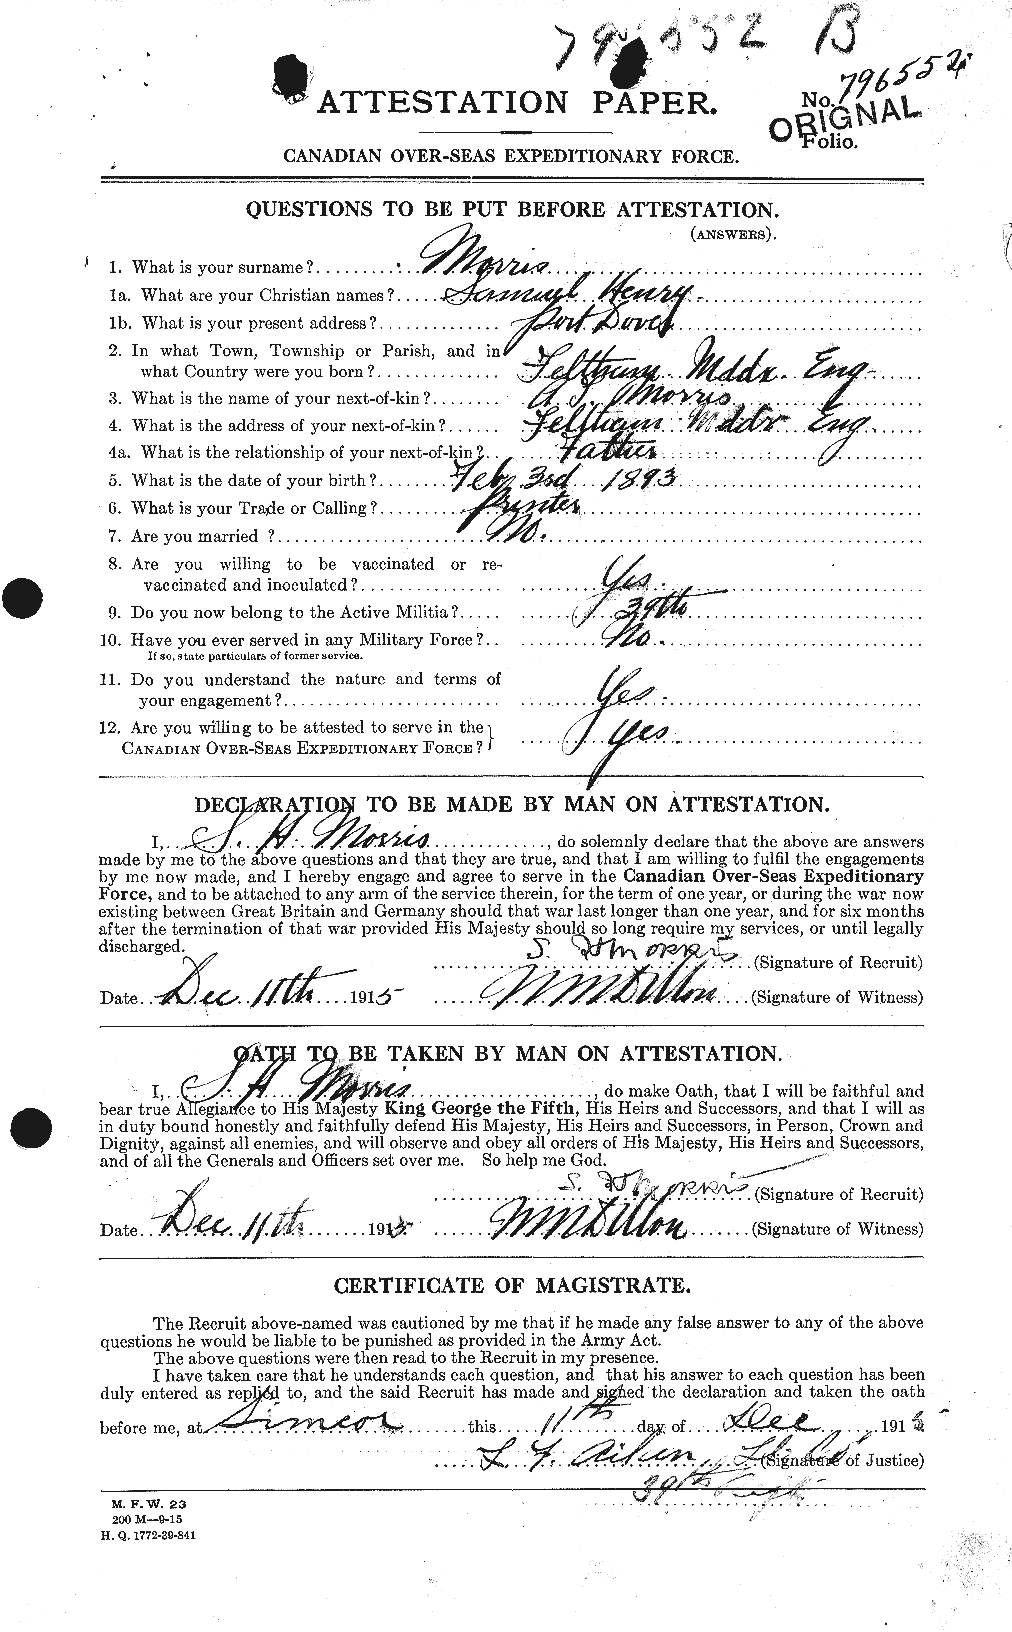 79 552 B
No. 796552
ATTESTATION PAPER.
ORIGNAL
Folio.
CANADIAN OVER-SEAS EXPEDITIONARY FORCE.
QUESTIONS TO BE PUT BEFORE ATTESTATION.
(ANSWERS).
1. What is your surname? Morris
1a. What are your Christian names? Samuel Henry
1b. What is your present address? Port Dover
2. In what Town, Township or Parish, and in
what Country were you born? Feltham Mddx. Eng
3. What is the name of your next-of-kin? A J Morris
4. What is the address of your next-of-kin? Feltham Mddx Eng
4a. What is the relationship of your next-of-kin? Father
5. What is the date of your birth? Feb 3rd 1893
6. What is your Trade or Calling? Printer
7. Are you married ? No.
8. Are you willing to be vaccinated or re-
vaccinated and inoculated? Yes.
9. Do you now belong to the Active Militia? 39th
10. Have you ever served in any Military Force? No.
If so, state particulars of former service.
11. Do you understand the nature and terms of
your engagement? Yes
12. Are you willing to be attested to serve in the
CANADIAN OVER-SEAS EXPEDITIONARY FORCE? yes
DECLARATION TO BE MADE BY MAN ON ATTESTATION.
I, S. H. Morris, do solemnly declare that the above are answers
made by me to the above questions and that they are true, and that I am willing to fulfil the engagements
by me now made, and I hereby engage and agree to serve in the Canadian Over-Seas Expeditionary
Force, and to be attached to any arm of the service therein, for the term of one year, or during the war now
existing between Great Britain and Germany should that war last longer than one year, and for six months
after the termination of that war provided His Majesty should so long require my services, or until legally
discharged.
S. H Morris (Signature of Recruit)
Date Dec 11th 1915 (Signature of Witness)
OATH TO BE TAKEN BY MAN ON ATTESTATION.
I, S H Morris, do make Oath, that I will be faithful and
bear true Allegiance to His Majesty King George the Fifth, His Heirs and Successors, and that I will as
in duty bound honestly and faithfully defend His Majesty, His Heirs and Successors, in Person, Crown and
Dignity, against all enemies, and will observe and obey all orders of His Majesty, His Heirs and Successors,
and of all the Generals and Officers set over me. So help me God.
S. H Morris (Signature of Recruit)
Date Dec 11th 1915 (Signature of Witness)
CERTIFICATE OF MAGISTRATE.
The Recruit above-named was cautioned by me that if he made any false answer to any of the above
questions he would be liable to be punished as provided in the Army Act.
The above questions were then read to the Recruit in my presence.
I have taken care that he understands each question, and that his answer to each question has been
duly entered as replied to, and the said Recruit has made and signed the declaration and taken the oath
before me, at Simcoe this 11th day of Dec 1915
L F Aiken (Signature of Justice)
39th
M. F. W. 23
200 M—9-15
H. Q. 1772-39-841